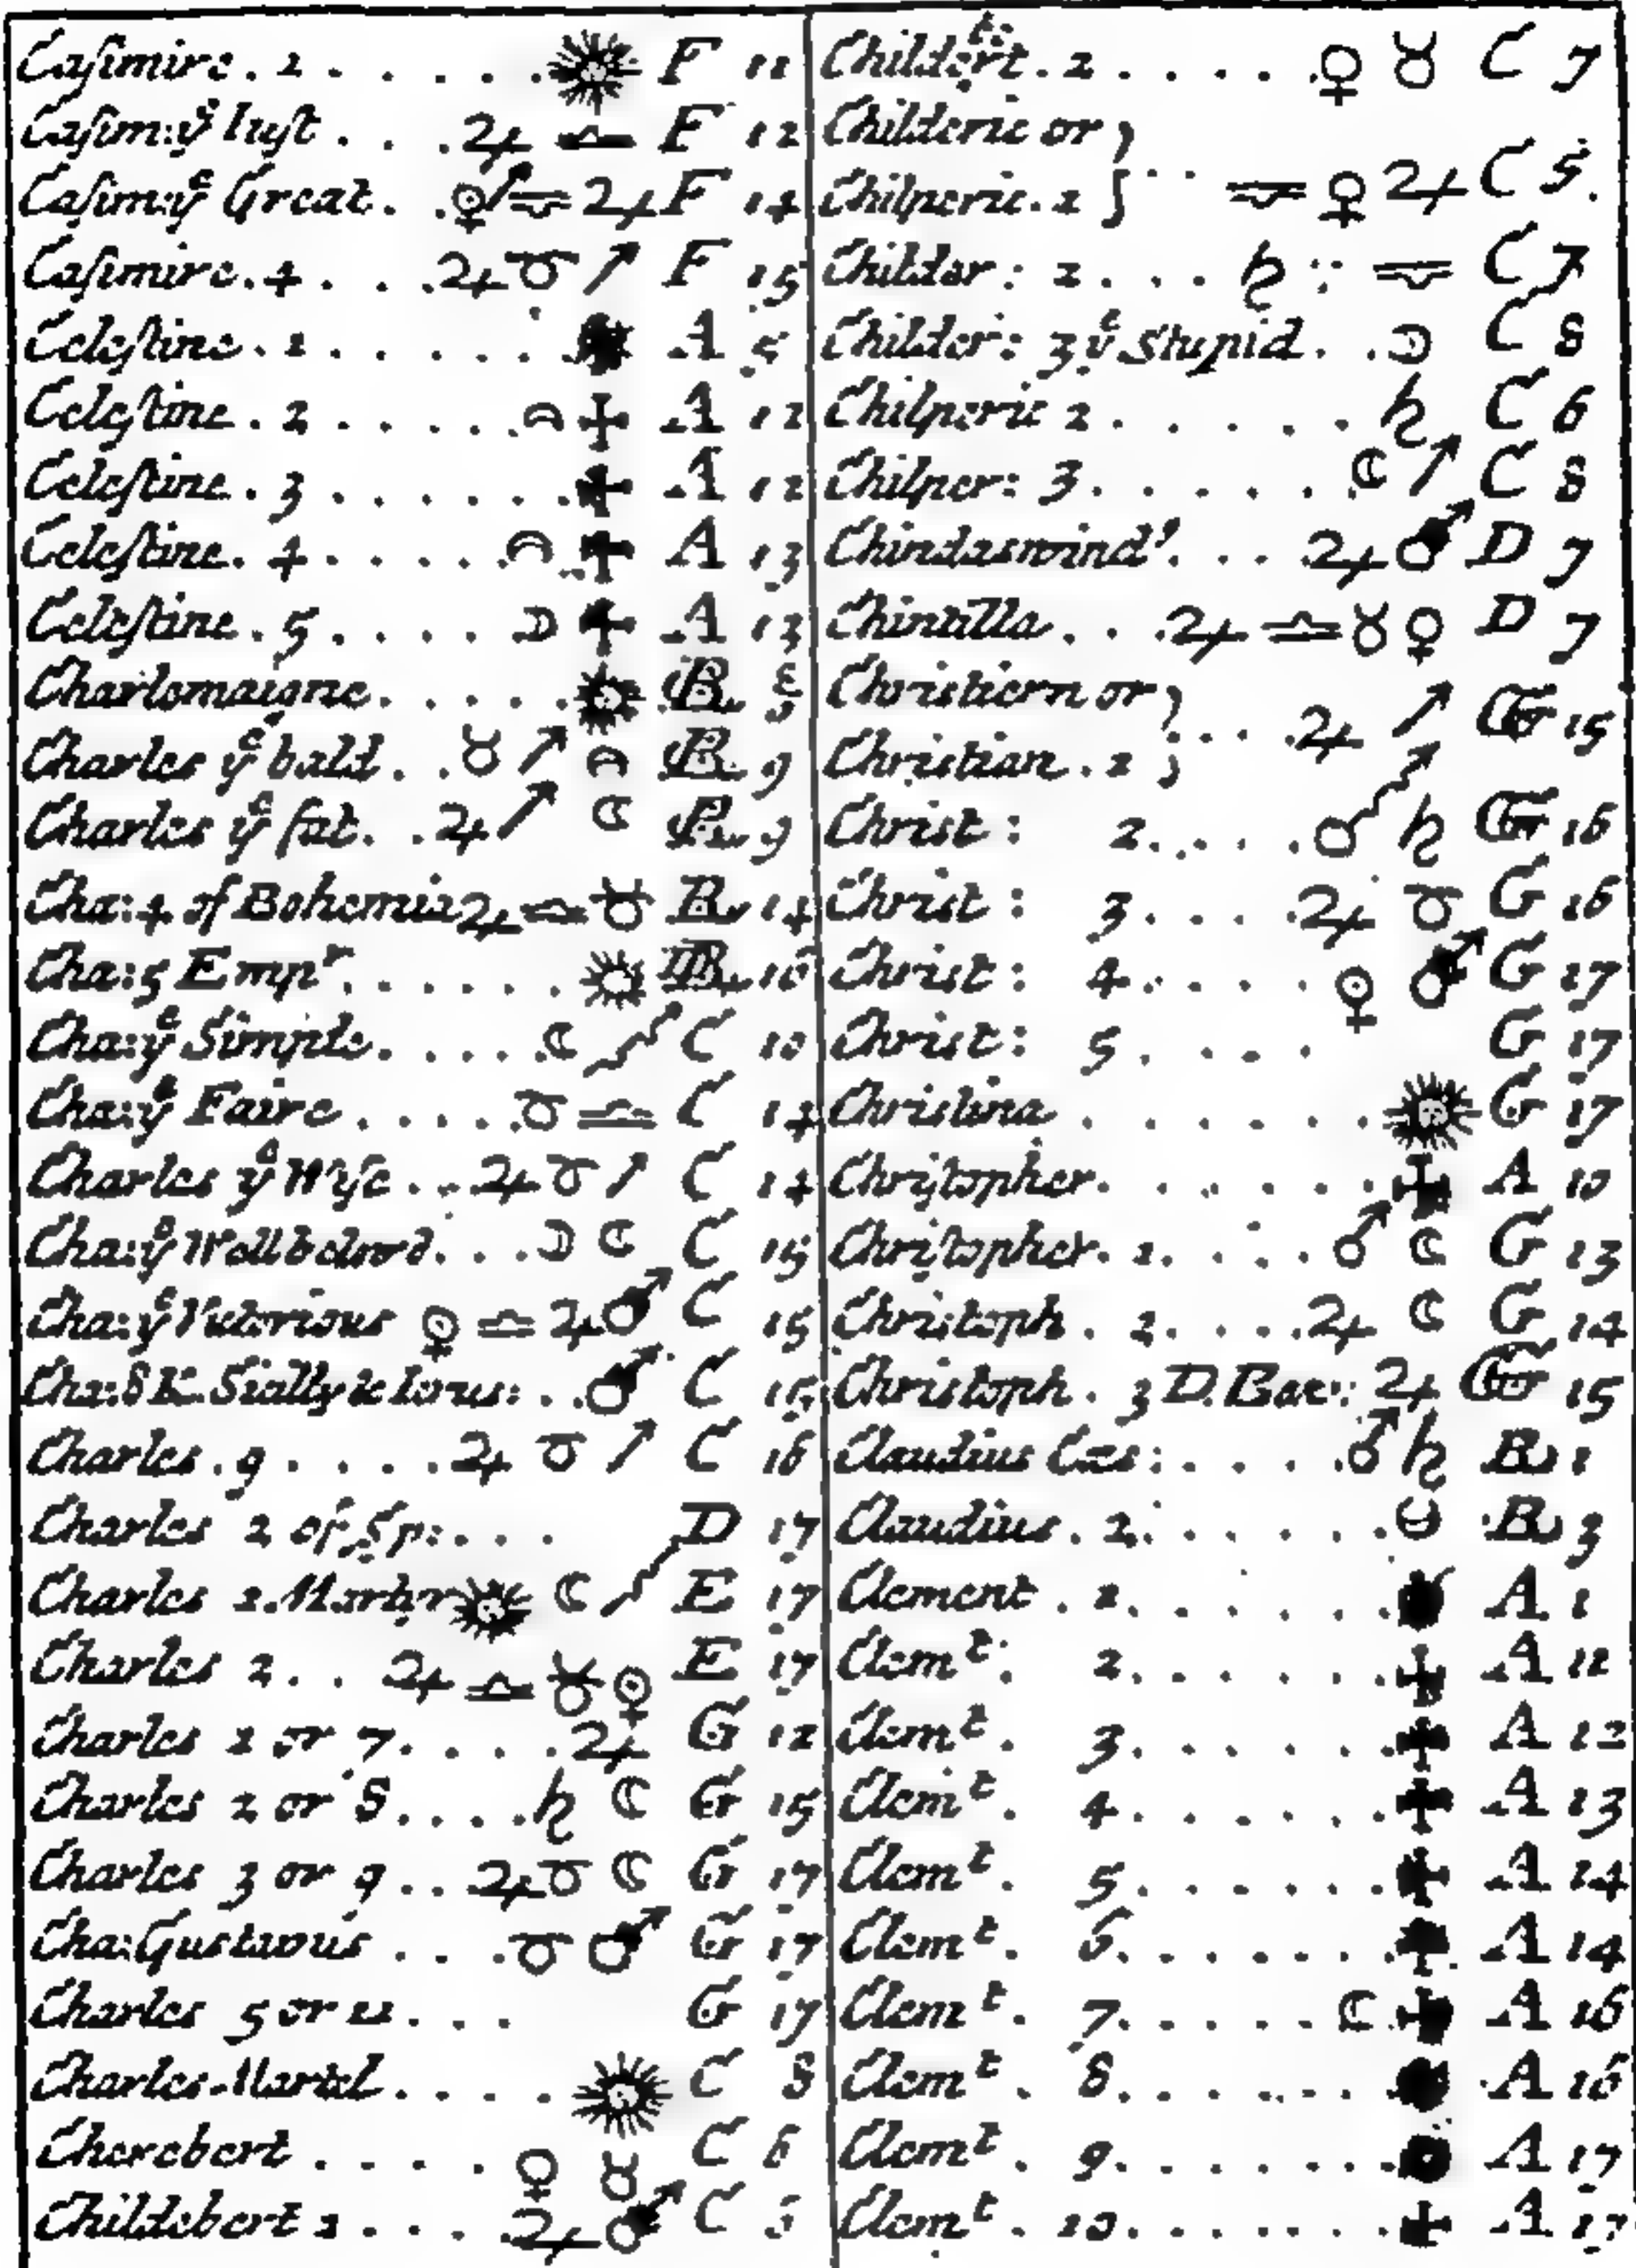 Casimire . 1 . . . . . ☉ F 11
Casim: yͤ Iust . . . ♃ ♎ F 12
Casim: yͤ Great . . F 14
Casimire . 4 . . . ♃ ♉ ↗ F 15
Celestine . 1 . . . . . . A 5
Celestine . 2 . . . . . A 12
Celestine . 3 . . . . . . A 12
Celestine . 4 . . . . . A 13
Celestine . 5 . . . . ☽ A 13
Charlemaigne . . . . . ☉ B
Charles yͤ bald . . ♉ ↗ B 9
Charles yͤ fat . . ♃ ↗ ☾ B 9
Cha: 4 of Bohemia ♃ ♎ ♉ B 14
Cha: 5 Empʳ . . . . . . ☉ B 16
Cha: yͤ Simple . . . . . ☾ C 10
Cha: yͤ Faire . . . . . ♉ ♎ C 14
Charles yͤ Wise . . . ♃ ♉ ↗ C 14
Cha: yͤ Wellbelovd . . . ☽ ☾ C 15
Cha: yͤ Victorious ♎ ♃ ♂ C 15
Cha: 8 K. Sicilly & Ierus: . . ♂ C 15
Charles . 9 . . . . . ♃ ♉ ↗ C 16
Charles 2 of Sp: . . . D 17
Charles 1. Martyr ☉ ☾ E 17
Charles 2 . . ♃ ♎ ♉ E 17
Charles 1 or 7 . . . . . ♃ G 12
Charles 2 or 8 . . . . . ♄ ☾ G 15
Charles 3 or 9 . . ♃ ♉ ☾ G 17
Cha: Gustavus . . . . ♉ ♂ G 17
Charles 5 or 11 . . . G 17
Charles-Martel . . . . ☉ C 8
Cherebert . . . . . ♀ ♉ C 6
Childebert 1 . . . . ♃ ♂ C 6
Childert . 2 . . . . . ♀ ♉ C 7
Childeric or }
Chilperic . 1 } . . ♎ ♀ ♃ C 5.
Childer : 2 . . . ♄ ♎ C 7
Childer : 3 yͤ Stupid . . ☽ C 8
Chilperic 2 . . . . . . ♄ C 6
Chilper : 3 . . . . . . ☾ ↗ C 8
Chindaswindꝰ . . . ♃ ♂ D 7
Chintilla . . . ♃ ♎ ♉ ♀ D 7
Christiern or }
Christian . 1 } . . . ♃ ↗ G 15
Christ : 2 . . . . . ♂ ♄ G 16
Christ : 3 . . . . ♃ ♉ G 16
Christ : 4 . . . . . ♂ G 17
Christ : 5 . . . . G 17
Christina . . . . . . . ☉ G 17
Christopher . . . . . . . A 10
Christopher . 1 . . . . ♂ ☾ G 13
Christoph . 2 . . . . . ♃ ☾ G 14
Christoph . 3 D. Bav: ♃ G 15
Claudius Cæs: . . . . . ♂ ♄ B 1
Claudius . 2 . . . . . . B 3
Clement . 1 . . . . . . A 1
Clemᵗ . 2 . . . . . . A 11
Clemᵗ . 3 . . . . . . A 12
Clemᵗ . 4 . . . . . . A 13
Clemᵗ . 5 . . . . . . A 14
Clemᵗ . 6 . . . . . . A 14
Clemᵗ . 7 . . . . . ☾ A 16
Clemᵗ . 8 . . . . . . A 16
Clemᵗ . 9 . . . . . . A 17
Clemᵗ . 10 . . . . . . A 17